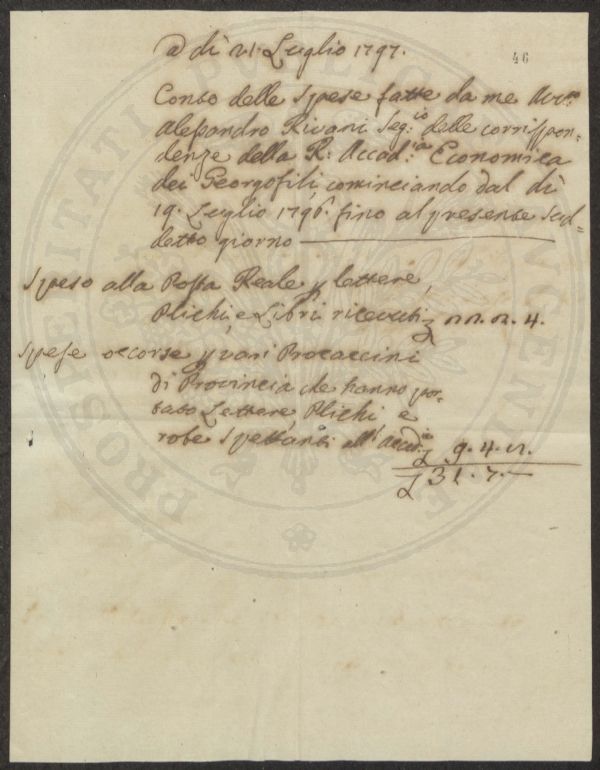 46
a dì 21. Luglio 1797.
Conto delle Spese fatte da me Avv.to
Alessandro Rivani Seg.rio delle corrispon=
denze della R: Accad:ia Economica
dei Georgofili, cominciando dal dì
19. Luglio 1796. fino al presente sud=
detto giorno
Speso alla Posta Reale p lettere,
Plichi, e Libri ricevuti £ 22. 2. 4.
Spese occorse p vari Procaccini
di Provincia che hanno por=
tato Lettere, Plichi e
robe spettanti all' Accad.ia £ 9. 4. 8.
£ 31. 7. —
PROSPERITATI PUBLICAE AUGENDAE